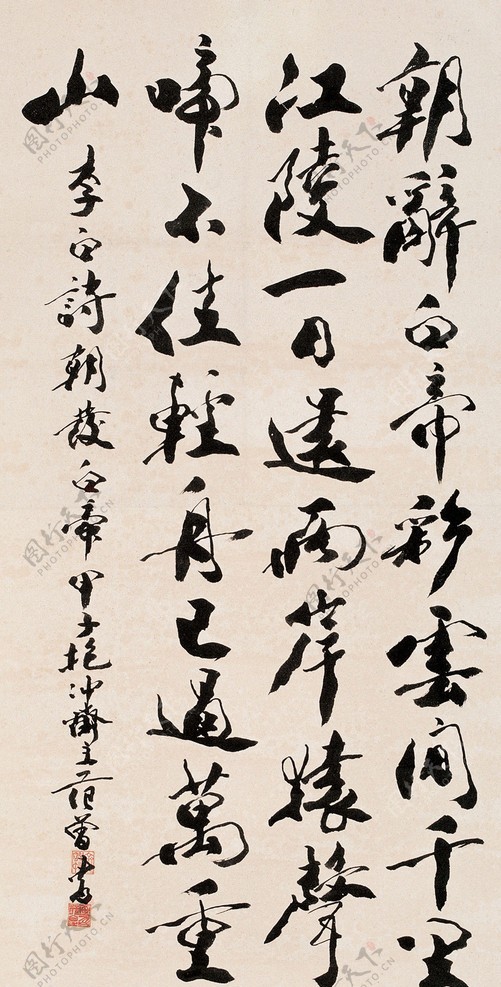 朝辭白帝彩雲間千里
江陵一日還兩岸猿聲
啼不住輕舟已過萬重
山
李白詩朝發白帝甲子抱沖齋主范曾書
图行天下
PHOTOPHOTO.CN